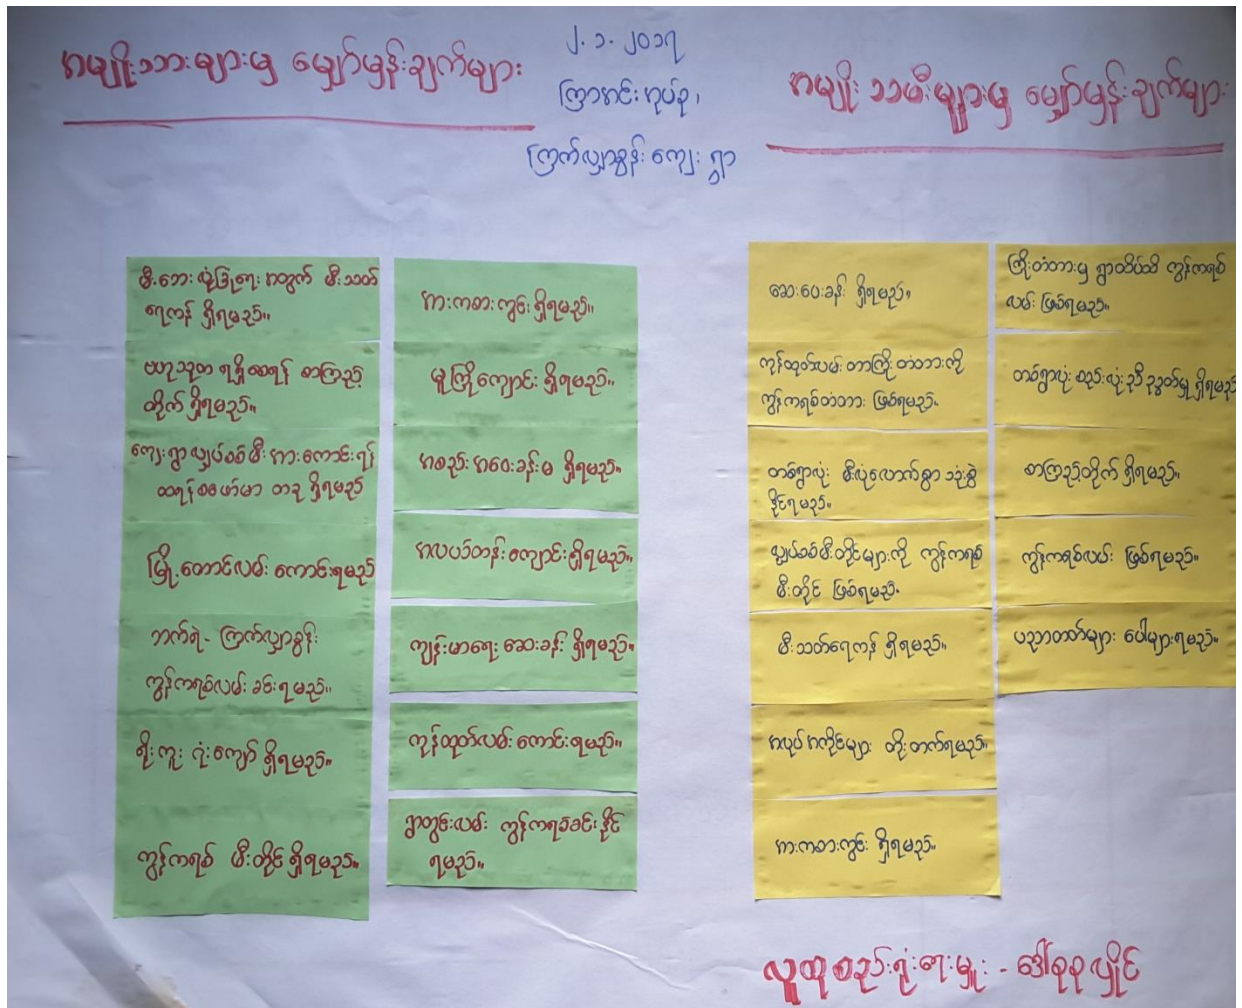 အမျိုးသားများမှ မျှော်မှန်းချက်များ
၂.၁.၂၀၁၇
ကြာအင်းအုပ်စု၊
ကြက်လျှာစွန်းကျေးရွာ
အမျိုးသမီးများမှ မျှော်မှန်းချက်များ
မီးဘေးလုံခြုံရေးအတွက် မီးသတ်
ရေကန် ရှိရမည်။
ဗဟုသုတ ရရှိစေရန် စာကြည့်
တိုက် ရှိရမည်။
ကျေးရွာလျှပ်စစ်မီးအားကောင်းရန်
ထရန်စဖော်မာ တခု ရှိရမည်
မြို့တောင်လမ်းကောင်းရမည်
ဘက်ရဲ - ကြက်လျှာစွန်း
ကွန်ကရစ်လမ်းခင်းရမည်။
ရိုးကူး ဂုံးကျော် ရှိရမည်။
ကွန်ကရစ် မီးတိုင် ရှိရမည်။
အားကစားကွင်း ရှိရမည်။
မူကြိုကျောင်း ရှိရမည်။
အစည်းအဝေးခန်းမ ရှိရမည်။
အလယ်တန်းကျောင်းရှိရမည်။
ကျန်းမာရေးဆေးခန်း ရှိရမည်။
ကုန်ထုတ်လမ်းကောင်းရမည်။
ရွာတွင်းလမ်း ကွန်ကရစ်ခင်းနိုင်
ရမည်။
ဆေးပေးခန်း ရှိရမည်။
ကုန်ထုတ်လမ်းတာကြိုးတံတားကို
ကွန်ကရစ်တံတား ဖြစ်ရမည်။
တစ်ရွာလုံး မီးလုံလောက်စွာ သုံးစွဲ
နိုင်ရမည်။
လျှပ်စစ်မီးတိုင်များကို ကွန်ကရစ်
မီးတိုင် ဖြစ်ရမည်။
မီးသတ်ရေကန် ရှိရမည်။
အလုပ်အကိုင်များ တိုးတက်ရမည်။
အားကစားကွင်း ရှိရမည်။
ကြိုးတံတားမှ ရွာထိပ်ထိ ကွန်ကရစ်
လမ်းဖြစ်ရမည်။
တစ်ရွာလုံးစည်းလုံးညီညွတ်မှု ရှိရမည်
စာကြည့်တိုက် ရှိရမည်။
ကွန်ကရစ်လမ်း ဖြစ်ရမည်။
ပညာတတ်များ ပေါများရမည်။
လူထုစည်းရုံးရေးမှူး - ဒေါ်ခုခုလှိုင်